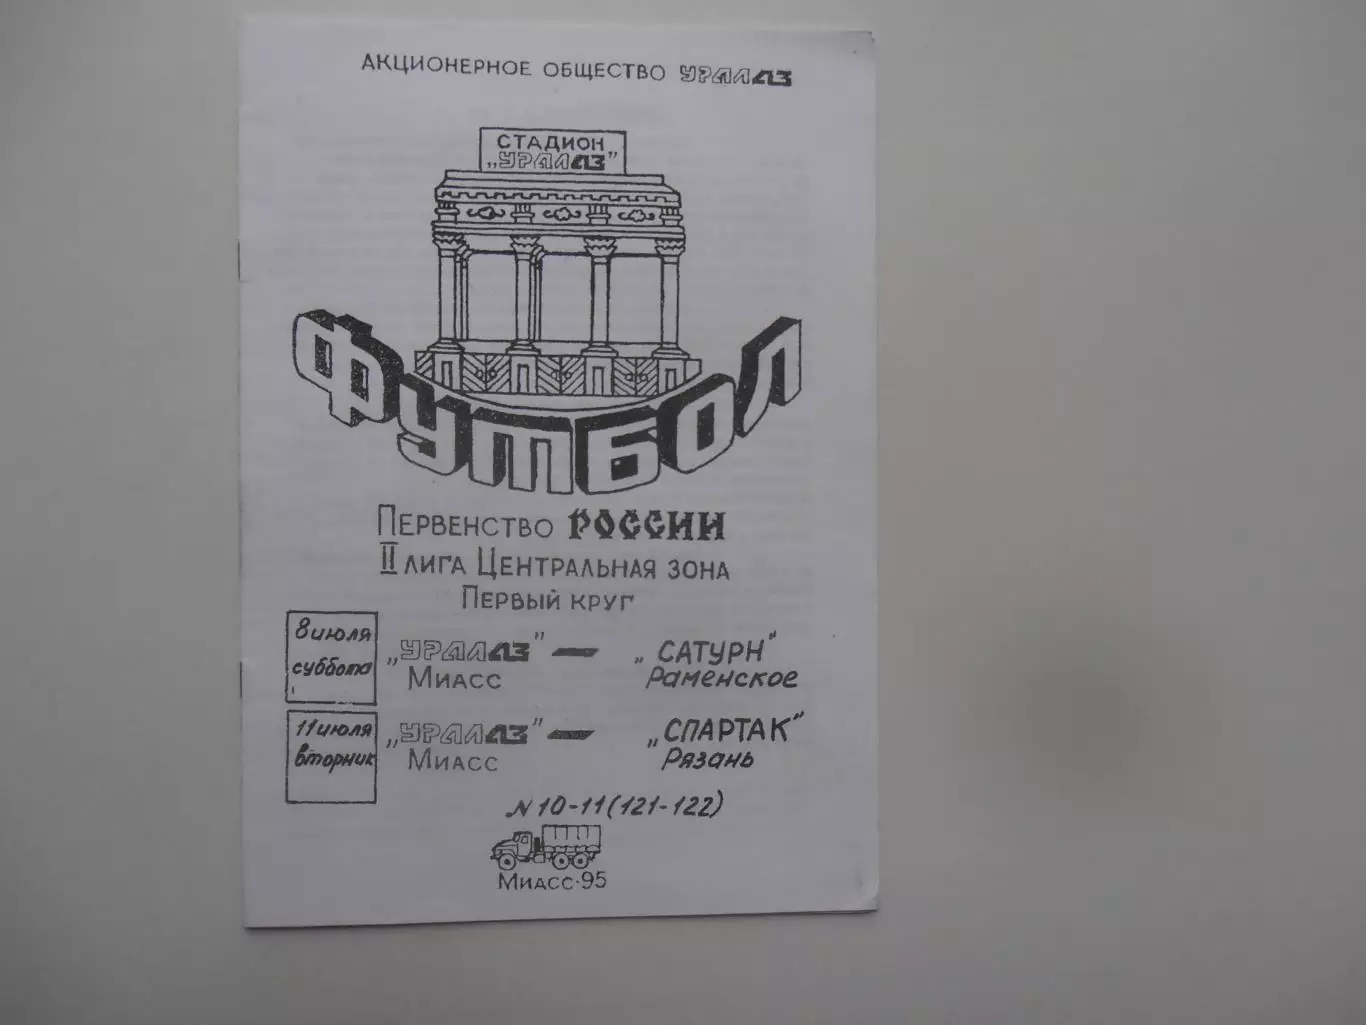 АКЦИОНЕРНОЕ ОБЩЕСТВО УРАЛАЗ
СТАДИОН
„УРАЛАЗ"
ФУТБОЛ
ПЕРВЕНСТВО РОССИИ
II ЛИГА ЦЕНТРАЛЬНАЯ ЗОНА
ПЕРВЫЙ КРУГ
8 июля
суббота
„УРАЛАЗ" — „САТУРН"
МИАСС Раменское
11 июля
вторник
„УРАЛАЗ" — „СПАРТАК"
МИАСС Рязань
N 10-11 (121-122)
МИАСС·95